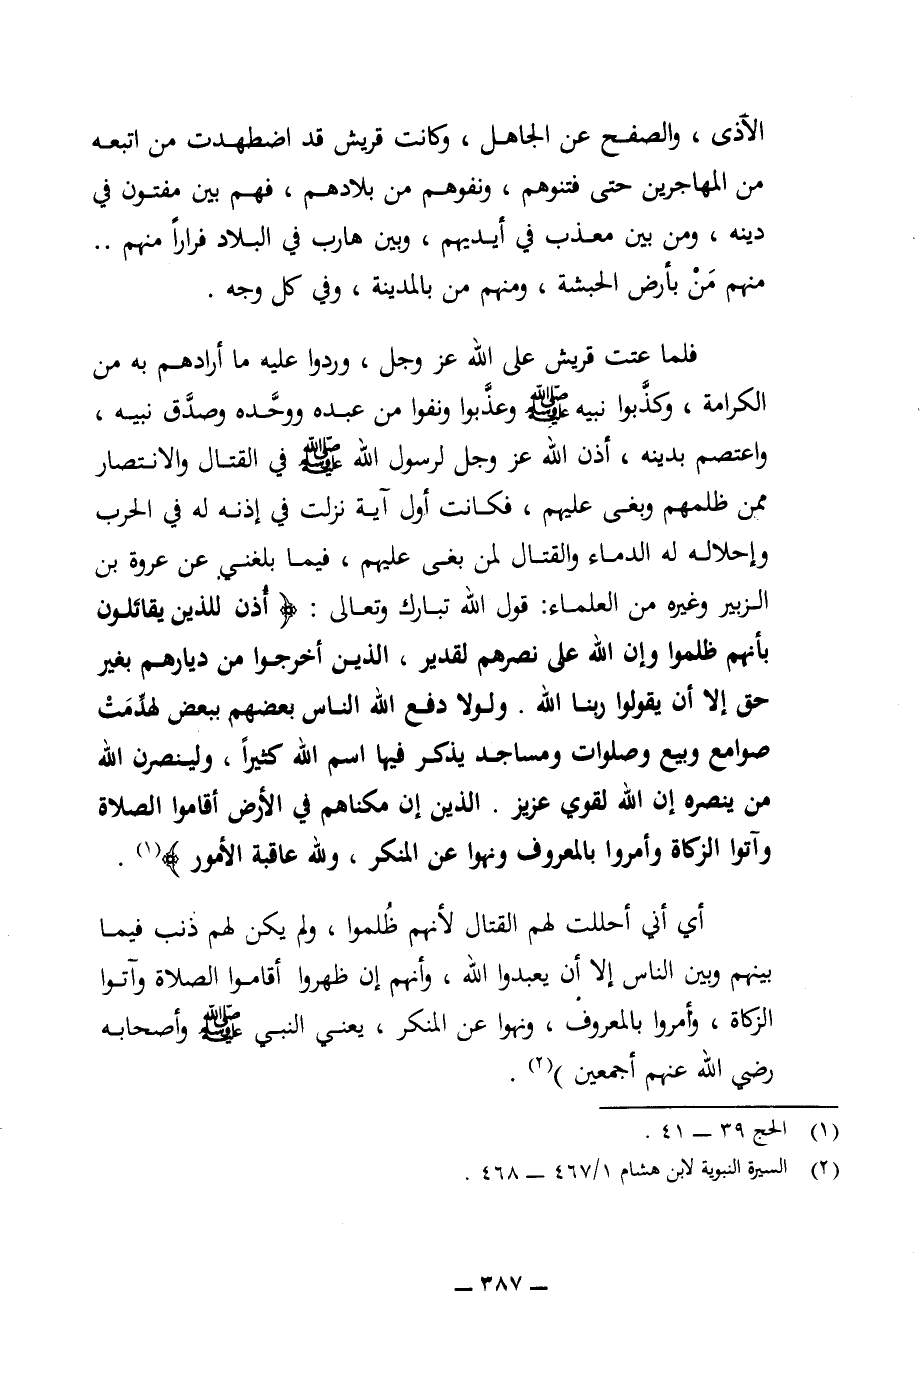 الآذى ، والصفح عن الجاهل ، وكانت قريش قد اضطهدت من اتبعه
من المهاجرين حتى فتنوهم ، ونفوهم من بلادهم ، فهم بين مفتون في
دينه ، ومن بين معذب في أيديهم ، وبين هارب في البلاد فراراً منهم ..
منهم مَنْ بأرض الحبشة ، ومنهم من بالمدينة ، وفي كل وجه .
فلما عتت قريش على الله عز وجل ، وردوا عليه ما أرادهم به من
الكرامة ، وكذَّبوا نبيه ﷺ وعذَّبوا ونفوا من عبده ووحَّده وصدَّق نبيه ،
واعتصم بدينه ، أذن الله عز وجل لرسول الله ﷺ في القتال والانتصار
ممن ظلمهم وبغى عليهم ، فكانت أول آية نزلت في إذنه له في الحرب
وإحلاله له الدماء والقتال لمن بغى عليهم ، فيما بلغني عن عروة بن
الزبير وغيره من العلماء: قول الله تبارك وتعالى : ﴿ أُذن للذين يقاتلون
بأنهم ظلموا وإن الله على نصرهم لقدير ، الذين أخرجوا من ديارهم بغير
حق إلا أن يقولوا ربنا الله . ولولا دفع الله الناس بعضهم ببعض لهدِّمَتْ
صوامع وبيع وصلوات ومساجد يذكر فيها اسم الله كثيراً ، ولينصرن الله
من ينصره إن الله لقوي عزيز . الذين إن مكناهم في الأرض أقاموا الصلاة
وآتوا الزكاة وأمروا بالمعروف ونهوا عن المنكر ، ولله عاقبة الأمور ﴾(١) .
أي أني أحللت لهم القتال لأنهم ظُلموا ، ولم يكن لهم ذنب فيما
بينهم وبين الناس إلا أن يعبدوا الله ، وأنهم إن ظهروا أقاموا الصلاة وآتوا
الزكاة ، وأمروا بالمعروف ، ونهوا عن المنكر ، يعني النبي ﷺ وأصحابه
رضي الله عنهم أجمعين )(٢) .
(١) الحج ٣٩ ــ ٤١ .
(٢) السيرة النبوية لابن هشام ٤٦٧/١ ــ ٤٦٨ .
ــ ٣٨٧ ــ